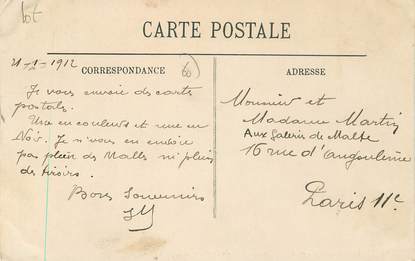 lot
CARTE POSTALE
21-1-1912
CORRESPONDANCE
60
ADRESSE
Je vous envoie des cartes
postals.
Une en couleurs et une en
Noir. Je n'vous en envoie
pas plein des Malles ni plein
des tiroirs.
Bons Souvenirs
Monsieur et
Madame Martin
Aux Galeries de Malte
16 rue d'angoulème
Paris 11e